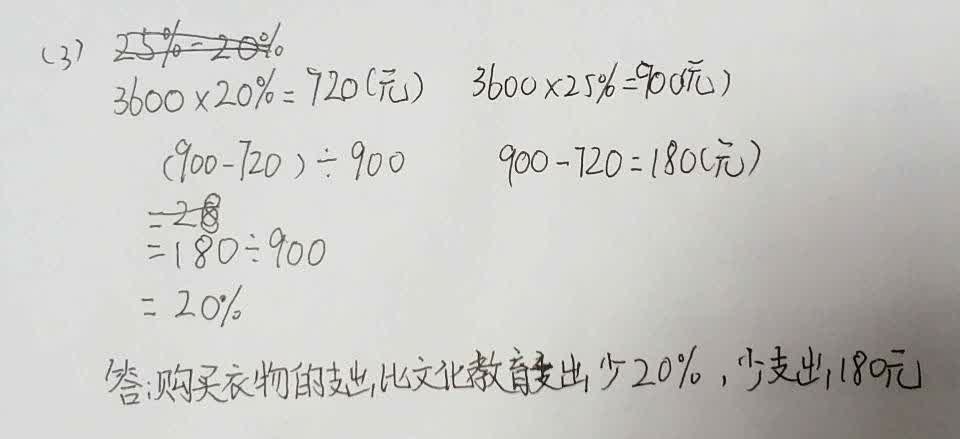 (3) 25%-20%
3600×20%=720(元) 3600×25%=900(元)
(900-720)÷900 900-720=180(元)
=28
=180÷900
=20%
答:购买衣物的支出比文化教育支出少20%,少支出180元